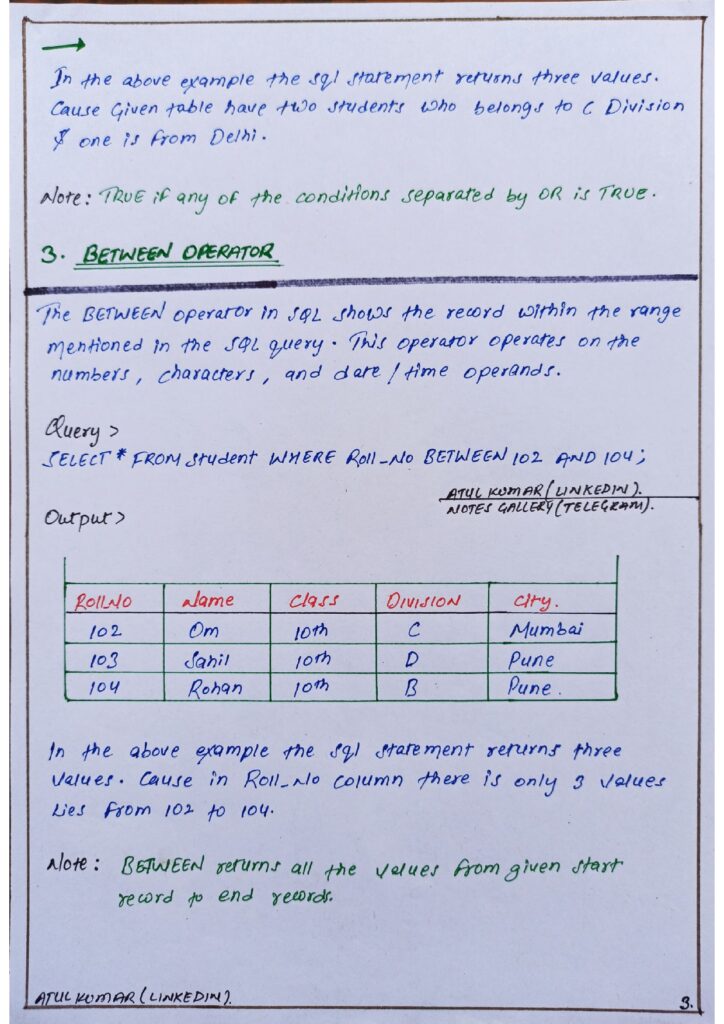 In the above example the sql statement returns three values.
Cause Given table have two students who belongs to C Division
& one is from Delhi.
Note: TRUE if any of the conditions separated by OR is TRUE.
3. BETWEEN OPERATOR
The BETWEEN operator in SQL shows the record within the range
mentioned in the SQL query. This operator operates on the
numbers, characters, and date / time operands.
Query >
SELECT * FROM student WHERE Roll_No BETWEEN 102 AND 104;
ATUL KUMAR (LINKEDIN).
NOTES GALLERY (TELEGRAM).
Output >
RollNo Name Class DIVISION City.
102 Om 10th C Mumbai
103 Sahil 10th D Pune
104 Rohan 10th B Pune.
In the above example the sql statement returns three
values. Cause in Roll_No column there is only 3 values
Lies from 102 to 104.
Note: BETWEEN returns all the values from given start
record to end records.
ATUL KUMAR (LINKEDIN).
3.